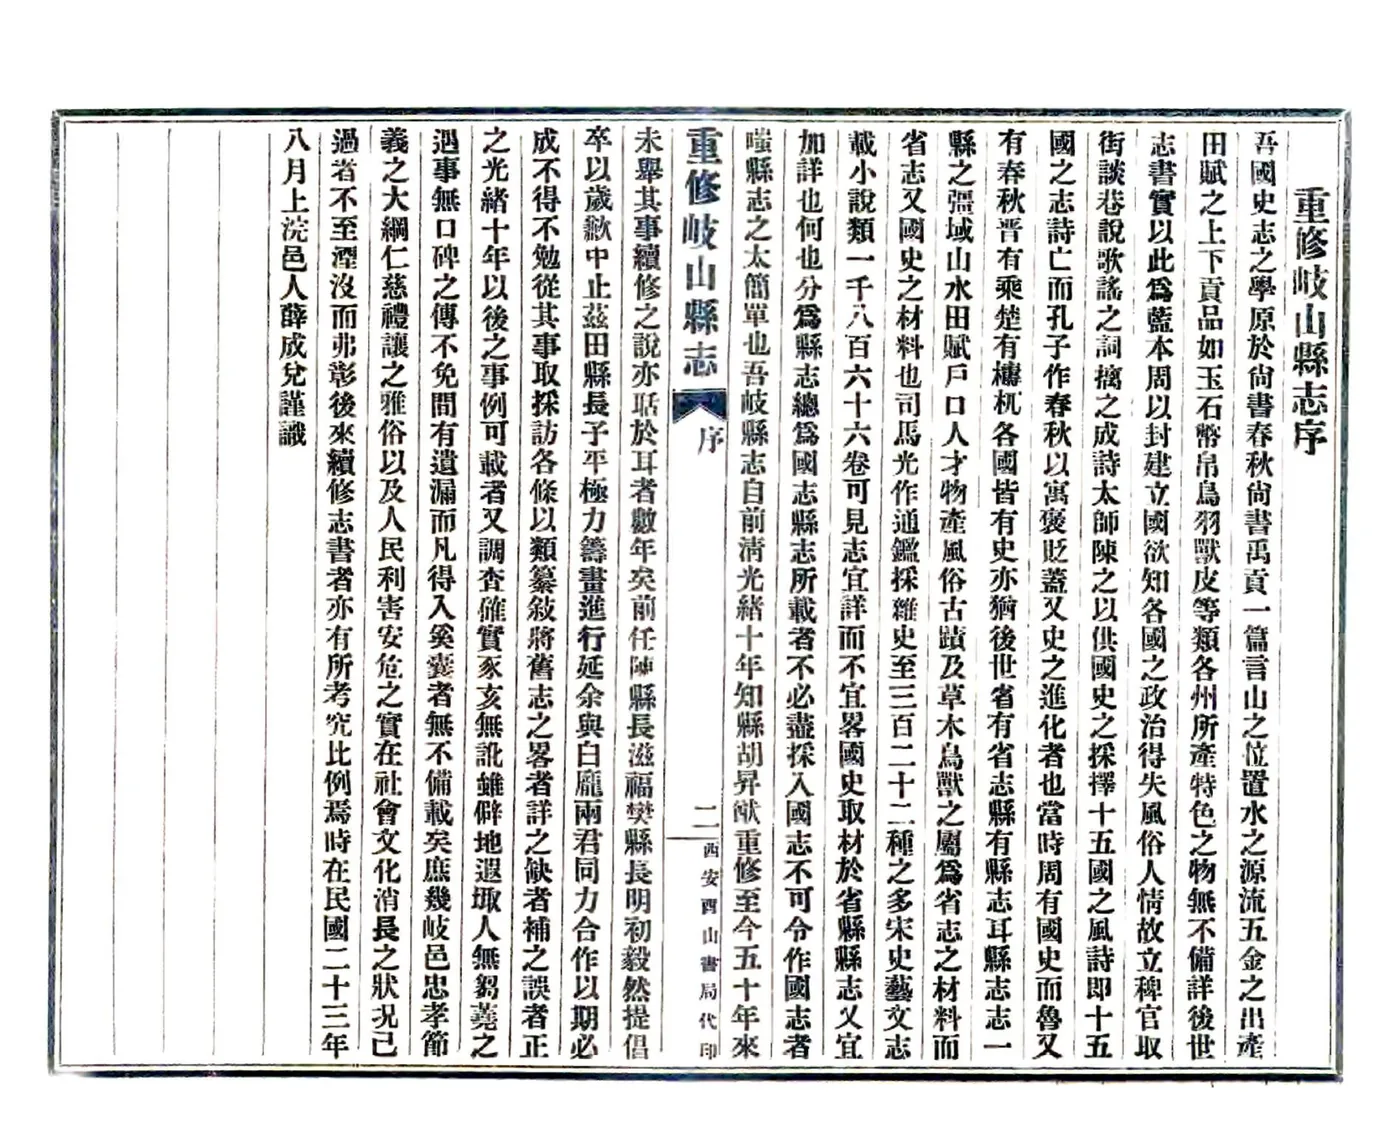 重修岐山縣志序
吾國史志之學原於尙書春秋尙書禹貢一篇言山之位置水之源流五金之出產
田賦之上下貢品如玉石幣帛鳥羽獸皮等類各州所產特色之物無不備詳後世
志書實以此爲藍本周以封建立國欲知各國之政治得失風俗人情故立稗官取
街談巷說歌謠之詞擒之成詩太師陳之以供國史之採擇十五國之風詩即十五
國之志詩亡而孔子作春秋以寓褒貶蓋又史之進化者也當時周有國史而魯又
有春秋晋有乘楚有檮杌各國皆有史亦猶後世省有省志縣有縣志耳縣志志一
縣之彊域山水田賦戶口人才物產風俗古蹟及草木鳥獸之屬爲省志之材料而
省志又國史之材料也司馬光作通鑑採雜史至三百二十二種之多宋史藝文志
載小說類一千八百六十六卷可見志宜詳而不宜畧國史取材於省縣縣志又宜
加詳也何也分爲縣志總爲國志縣志所載者不必盡採入國志不可令作國志者
嗤縣志之太簡單也吾岐縣志自前淸光緒十年知縣胡昇猷重修至今五十年來
重修岐山縣志
序
二
西安酉山書局代印
未舉其事續修之說亦聒於耳者數年矣前任陳縣長滋福樊縣長明初毅然提倡
卒以歲歉中止茲田縣長子平極力籌畫進行延余與白龐兩君同力合作以期必
成不得不勉從其事取採訪各條以類纂敍將舊志之畧者詳之缺者補之誤者正
之光緒十年以後之事例可載者又調査確實豕亥無訛雖僻地遐陬人無芻蕘之
遇事無口碑之傳不免間有遺漏而凡得入奚囊者無不備載矣庶幾岐邑忠孝節
義之大綱仁慈禮讓之雅俗以及人民利害安危之實在社會文化消長之狀況已
過者不至湮沒而弗彰後來續修志書者亦有所考究比例焉時在民國二十三年
八月上浣邑人薛成兌謹識